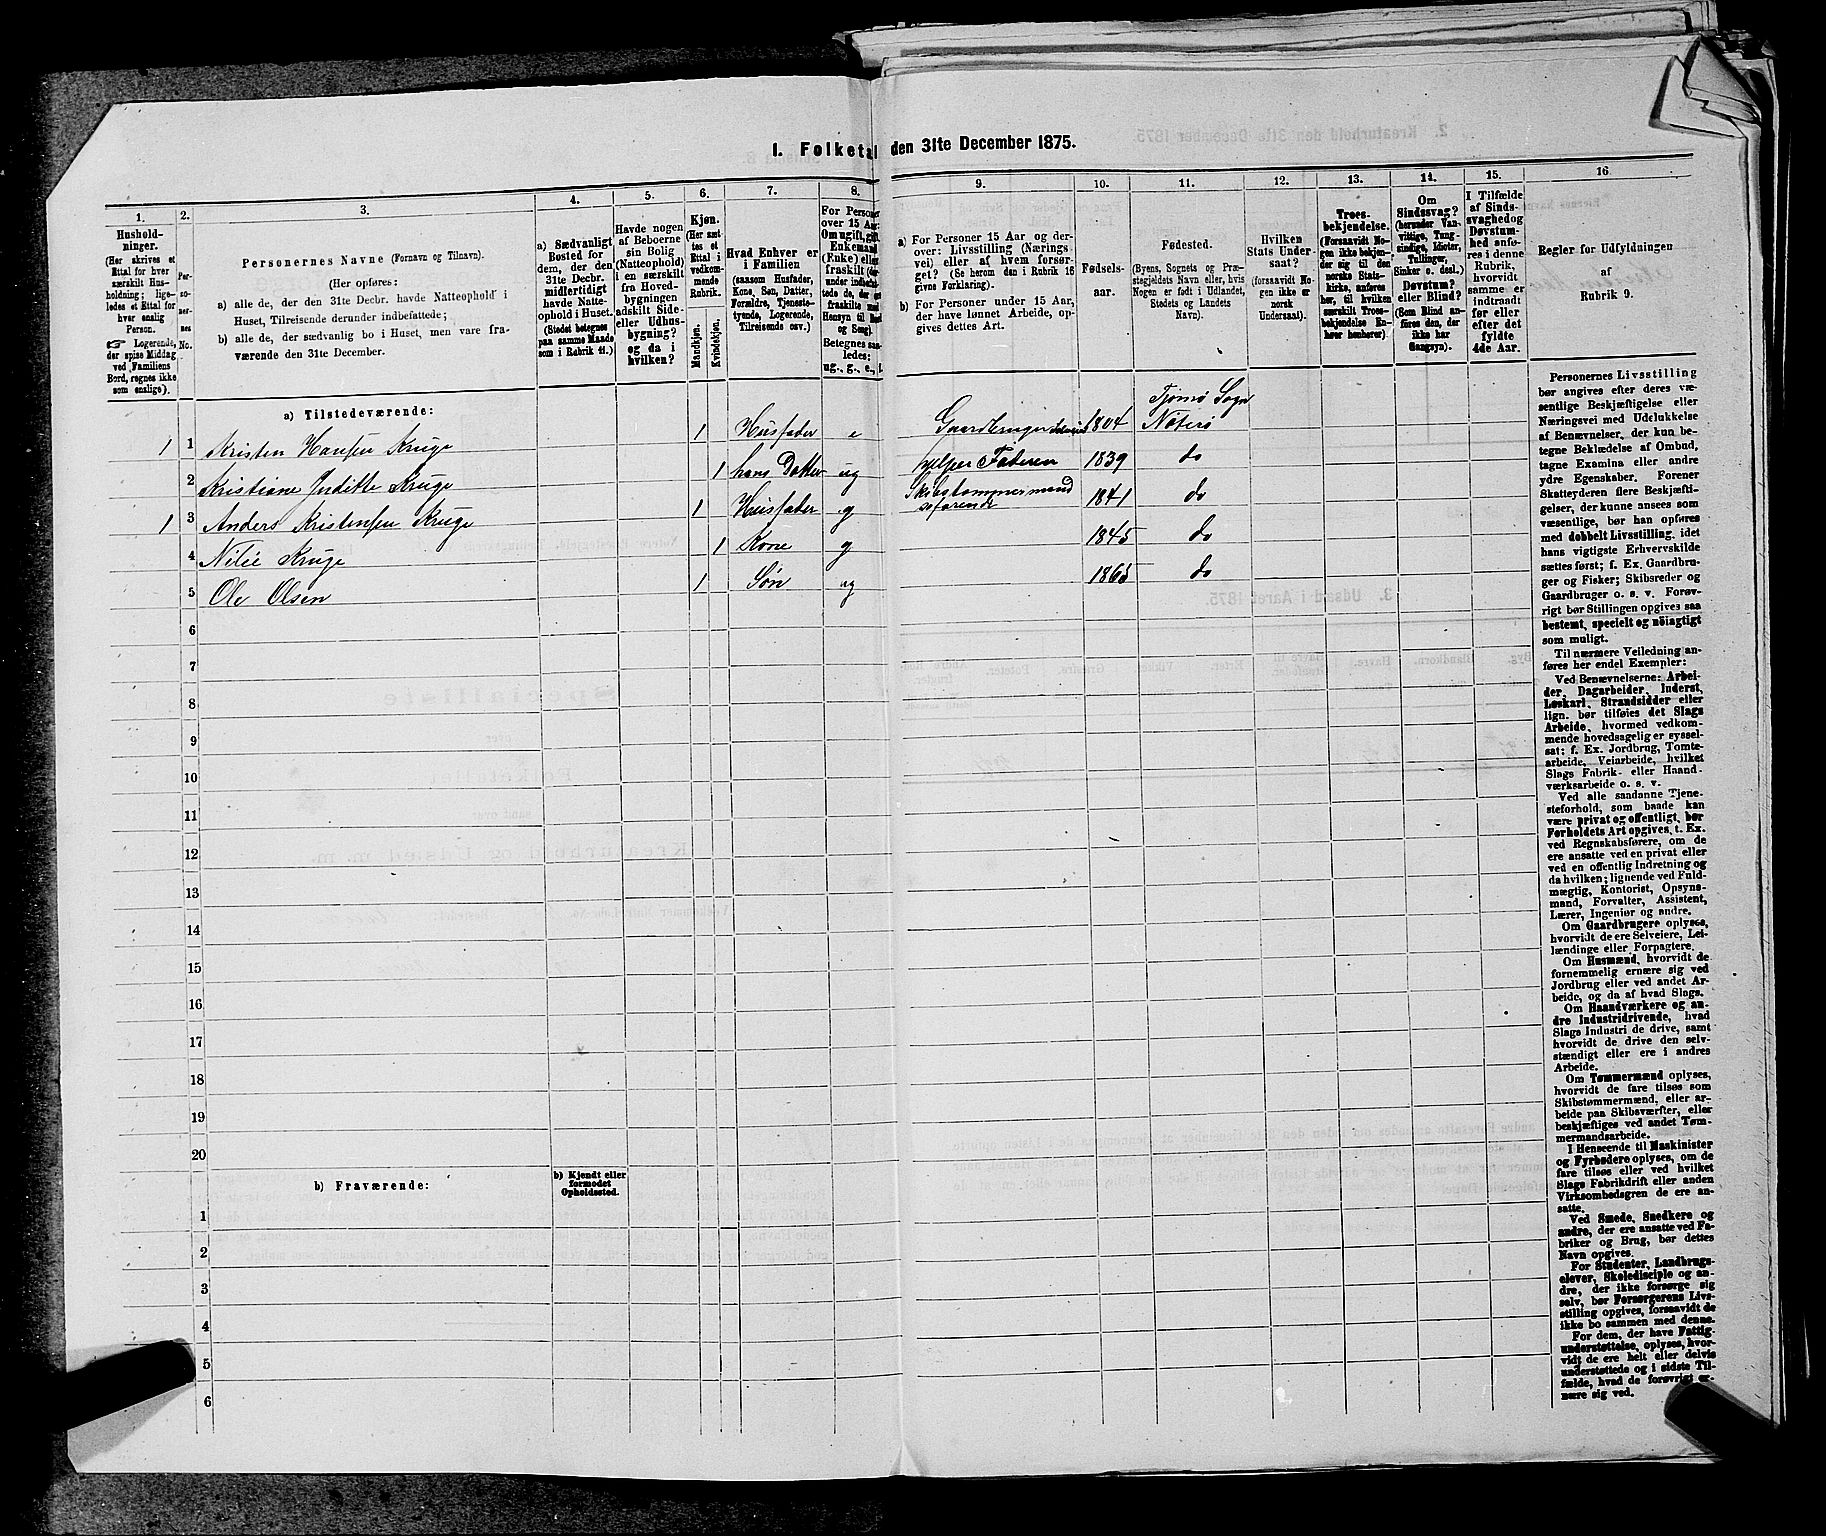 I. Folketal den 31te December 1875.
1. 2. 3. 4. 5. 6. 7. 8. 9. 10. 11. 12. 13. 14. 15. 16
Hushold-
ninger.
(Her skrives et
Ettal for hver
særskilt Hus-
holdning; lige-
ledes et Ettal for
hver enslig
Person.
☞ Logerende,
der spise Middag
ved Familiens
Bord, regnes ikke
som enslige).
Per-
so-
ner-
nes
No.
Personernes Navne (Fornavn og Tilnavn).
(Her opføres:
a) alle de, der den 31te Decbr. havde Natteophold i
Huset, Tilreisende derunder indbefattede;
b) alle de, der sædvanlig bo i Huset, men vare fra-
værende den 31te December.
a) Sædvanligt
Bosted for
dem, der den
31te Decbr.
midlertidigt
havde Natte-
ophold i Huset.
(Stedet betegnes
paa samme Maade
som i Rubrik 11.)
Havde nogen
af Beboerne
sin Bolig
(Natteophold)
i en særskilt
fra Hoved-
bygningen
adskilt Side-
eller Udhus-
bygning?
og da i
hvilken?
Kjøn.
(Her sæt-
tes et
Ettal i
vedkom-
mende
Rubrik.
Mandkjøn.
Kvindekjøn.
Hvad Enhver er
i Familien
(saasom Husfader,
Kone, Søn, Datter,
Forældre, Tjeneste-
tyende, Logerende,
Tilreisende osv.)
For Personer
over 15 Aar:
Om ugift, gift,
Enkemand
(Enke) eller
fraskilt (der-
under indbefat-
tede de, der ere
fraskilte med
Hensyn til Bord
og Seng).
Betegnes saa-
ledes:
ug., g., e.,
a) For Personer 15 Aar og der-
over: Livsstilling (Nærings-
vei) eller af hvem forsør-
get? (Se herom den i Rubrik 16
givne Forklaring).
b) For Personer under 15 Aar,
der have lønnet Arbeide, op-
gives dettes Art.
Fødsels-
aar.
Fødested.
(Byens, Sognets og Præ-
stegjeldets Navn eller, hvis
Nogen er født i Udlandet,
Stedets og Landets
Navn).
Hvilken
Stats Under-
saat?
(forsaavidt No-
gen ikke er
norsk
Undersaat).
Troes-
bekjendelse.
(Forsaavidt No-
gen ikke bekjen-
der sig til den
norske Stats-
kirke, anføres
her, til hvilken
særskilt Troes-
bekjendelse En-
hver henhører).
Om
Sindssvag?
(herunder Van-
vittige, Tung-
sindige, Idioter,
Tullinger,
Sinker o. desl.)
Døvstum?
eller Blind?
(Som Blind an-
føres den, der
ikke har
Gangsyn).
I Tilfælde
af Sinds-
svaghed og
Døvstum-
hed anfø-
res i denne
Rubrik,
hvorvidt
samme er
indtraadt
før eller
efter det
fyldte
4de Aar.
Regler for Udfyldningen
af
Rubrik 9.
a) Tilstedeværende:
Tjømø Sogn
1 1 Kristen Hansen Kruge 1 Husfader e Gaardbruger 1804 Nøterø
2 Kristiane Inditte Kruge 1 hans Datter ug hjelper Faderen 1839 do
1 3 Anders Kristensen Kruge 1 Husfader g Skibstømmermand søfarende 1841 do
4 Kruge 1 Kone g 1845 do
5 Ole Olsen 1 Søn ug 1865 do
6
7
8
9
10
11
12
13
14
15
16
17
18
19
20
b) Fraværende:
b) Kjendt eller
formodet
Opholdssted.
1
2
3
4
5
6
Personernes Livsstilling
bør angives efter deres væ-
sentlige Beskjæftigelse eller
Næringsvei med Udelukkelse
af Benævnelser, der kun be-
tegne Beklædelse af Ombud,
tagne Examina eller andre
ydre Egenskaber. Forener
Skatteyderen flere Beskjæfti-
gelser, der kunne ansees som
væsentlige, bør han opføres
med dobbelt Livsstilling, idet
hans vigtigste Erhvervskilde
sættes først; f. Ex. Gaardbru-
ger og Fisker; Skibsreder og
Gaardbruger o. s. v. Forøv-
rigt bør Stillingen opgives saa
bestemt, specielt og nöiagtigt
som muligt.
Til nærmere Veiledning an-
føres her endel Exempler:
Ved Benævnelserne: Arbei-
der, Dagarbeider, Inderst,
Løskarl, Strandsidder eller
lign. bør tilføies det Slags
Arbeide, hvormed vedkom-
mende hovedsagelig er syssel-
sat; f. Ex. Jordbrug, Tomte-
arbeide, Veiarbeide, hvilket
Slags Fabrik- eller Haand-
værksarbeide o. s. v.
Ved alle saadanne Tjene-
steforhold, som baade kan
være privat og offentligt, bør
Forholdets Art opgives, t. Ex.
ved Regnskabsførere, om de
ere ansatte ved en privat eller
ved en offentlig Indretning og
da hvilken; lignende ved Fuld-
mægtig, Kontorist, Opsyns-
mand, Forvalter, Assistent,
Lærer, Ingeniør og andre.
Om Gaardbrugere oplyses,
hvorvidt de ere Selveiere, Lei-
lændinge eller Forpagtere.
Om Husmænd, hvorvidt de
fornemmelig ernære sig ved
Jordbrug eller ved andet Ar-
beide, og da af hvad Slags.
Om Haandværkere og an-
dre Industridrivende, hvad
Slags Industri de drive, samt
hvorvidt de drive den selv-
stændigt eller ere i andres
Arbeide.
Om Tømmermænd oplyses,
hvorvidt de fare tilsøs som
Skibstømmermænd, eller ar-
beide paa Skibsværfter, eller
beskjæftiges ved andet Tøm-
mermandsarbeide.
I Henseende til Maskinister
og Fyrbødere oplyses, om de
fare tilsøs eller ved hvilket
Slags Fabrikdrift eller anden
Virksombedsgren de ere an-
satte.
Ved Smede, Snedkere og
andre, der ere ansatte ved Fa-
briker og Brug, bør dettes
Navn opgives.
For Studenter, Landbrugs-
elever, Skoledisciple og an-
dre, der ikke forsørge sig
selv, bør Forsørgerens Livs-
stilling opgives, forsaavidt de
ikke bo sammen med denne.
For dem, der have Fattig-
understøttelse, oplyses, hvor-
vidt de ere helt eller delvis
understøttede og i sidste Til-
fælde, hvad de forøvrigt er-
nære sig ved.